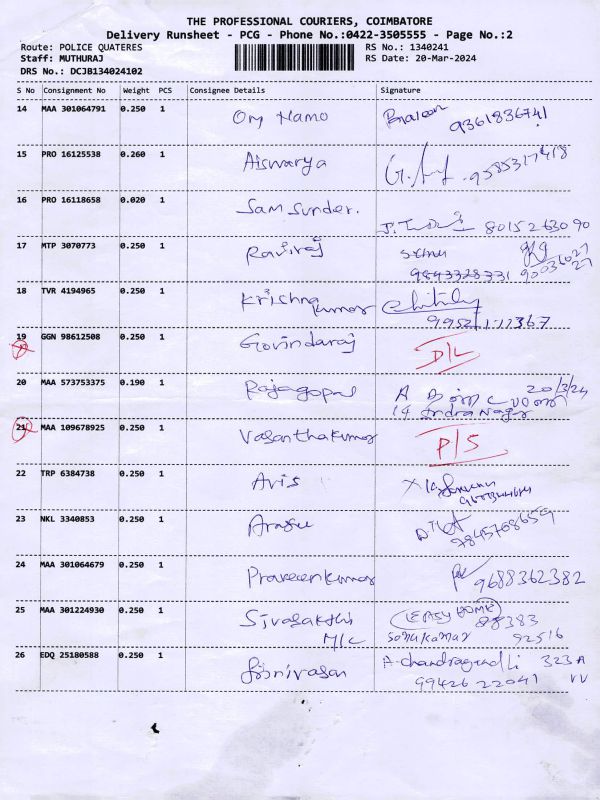 THE PROFESSIONAL COURIERS, COIMBATORE
Delivery Runsheet - PCG - Phone No.:0422-3505555 - Page No.:2
Route: POLICE QUATERES RS No.: 1340241
Staff: MUTHURAJ RS Date: 20-Mar-2024
DRS No.: DCJB134024102
S No Consignment No Weight PCS Consignee Details Signature
14 MAA 301064791 0.250 1 Om Namo 9361836741
15 PRO 16125538 0.260 1 Aiswarya 9585317418
16 PRO 16118658 0.020 1 Sam Sunder. 80152 630 90
17 MTP 3070773 0.250 1 Raviraj
9843328331
18 TVR 4194965 0.250 1 Krishna
Kumar
99521 11367
19 GGN 98612508 0.250 1 Govindaraj D/L
20 MAA 573753375 0.190 1 Rajagopal 20/3/24
14 Indra Nagar
21 MAA 109678925 0.250 1 Vasanthakumar P/S
22 TRP 6384738 0.250 1 Avis
23 NKL 3340853 0.250 1 Arasu 9845768659
24 MAA 301064679 0.250 1 Praveenkumar 9688362382
25 MAA 301224930 0.250 1 Sivasakthi (EASY HOME) 88383
M/C Sonukumar 92516
26 EDQ 25180588 0.250 1 Srinivasan A-chandragandhi 323 A
99426 22041 VV